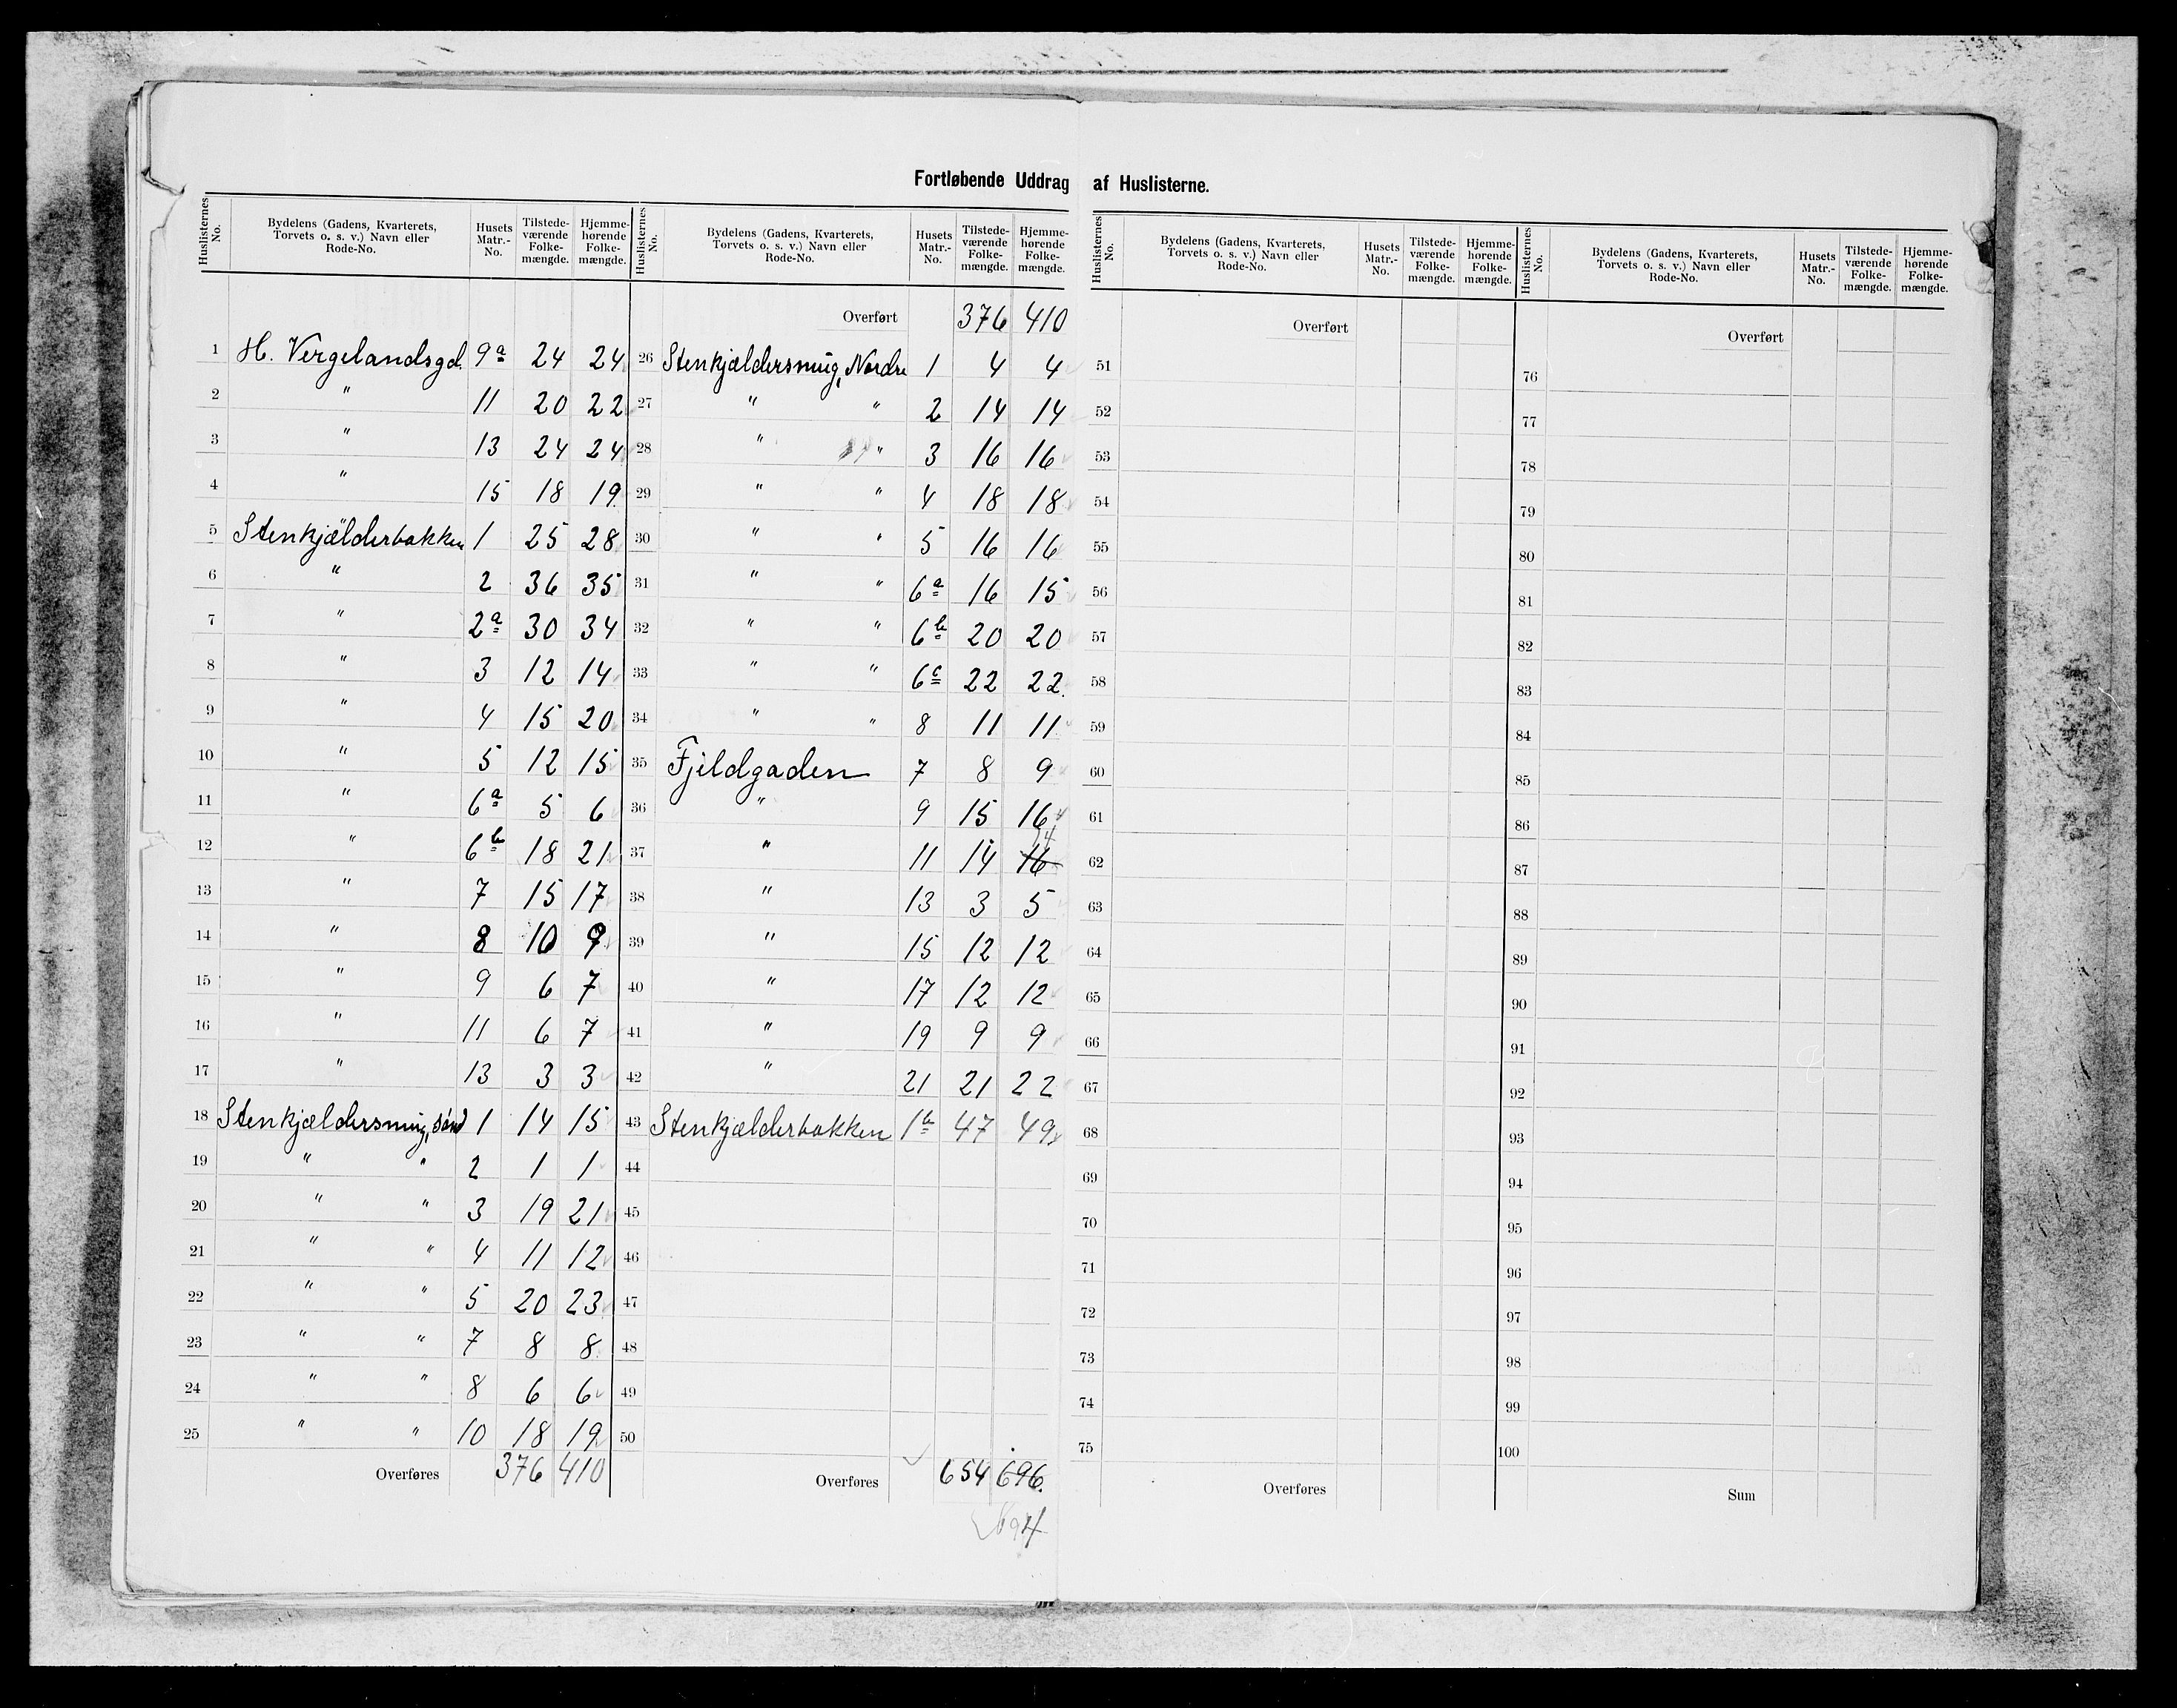 Fortløbende Uddrag af Huslisterne.
Huslisternes No. | Bydelens (Gadens, Kvarterets, Torvets o. s. v.) Navn eller Rode-No. | Husets Matr.-No. | Tilstede-værende Folke-mængde. | Hjemme-hørende Folke-mængde.
1 H. Vergelandsgd. 9a 24 24
2 " 11 20 22
3 " 13 24 24
4 " 15 18 19
5 Stenkjälderbakken 1 25 28
6 " 2 36 35
7 " 2a 30 34
8 " 3 12 14
9 " 4 15 20
10 " 5 12 15
11 " 6a 5 6
12 " 6b 18 21
13 " 7 15 17
14 " 8 10 9
15 " 9 6 7
16 " 11 6 7
17 " 13 3 3
18 Stenkjældersmug, sönd 1 14 15
19 " " 2 1 1
20 " " 3 19 21
21 " " 4 11 12
22 " " 5 20 23
23 " " 7 8 8
24 " " 8 6 6
25 " " 10 18 19
Overføres 376 410
Huslisternes No. | Bydelens (Gadens, Kvarterets, Torvets o. s. v.) Navn eller Rode-No. | Husets Matr.-No. | Tilstede-værende Folke-mængde. | Hjemme-hørende Folke-mængde.
Overført 376 410
26 Stenkjældersmug, Nordre 1 4 4
27 " " 2 14 14
28 " " 3 16 16
29 " " 4 18 18
30 " " 5 16 16
31 " " 6a 16 15
32 " " 6b 20 20
33 " " 6c 22 22
34 " " 8 11 11
35 Fjeldgaden 7 8 9
36 " 9 15 16
37 " 11 14 16 14
38 " 13 3 5
39 " 15 12 12
40 " 17 12 12
41 " 19 9 9
42 " 21 21 22
43 Stenkjælderbakken 1b 47 49
44
45
46
47
48
49
50
Overføres 654 696.
694
Huslisternes No. | Bydelens (Gadens, Kvarterets, Torvets o. s. v.) Navn eller Rode-No. | Husets Matr.-No. | Tilstede-værende Folke-mængde. | Hjemme-hørende Folke-mængde.
Overført
51
52
53
54
55
56
57
58
59
60
61
62
63
64
65
66
67
68
69
70
71
72
73
74
75
Overføres
Huslisternes No. | Bydelens (Gadens, Kvarterets, Torvets o. s. v.) Navn eller Rode-No. | Husets Matr.-No. | Tilstede-værende Folke-mængde. | Hjemme-hørende Folke-mængde.
Overført
76
77
78
79
80
81
82
83
84
85
86
87
88
89
90
91
92
93
94
95
96
97
98
99
100
Sum